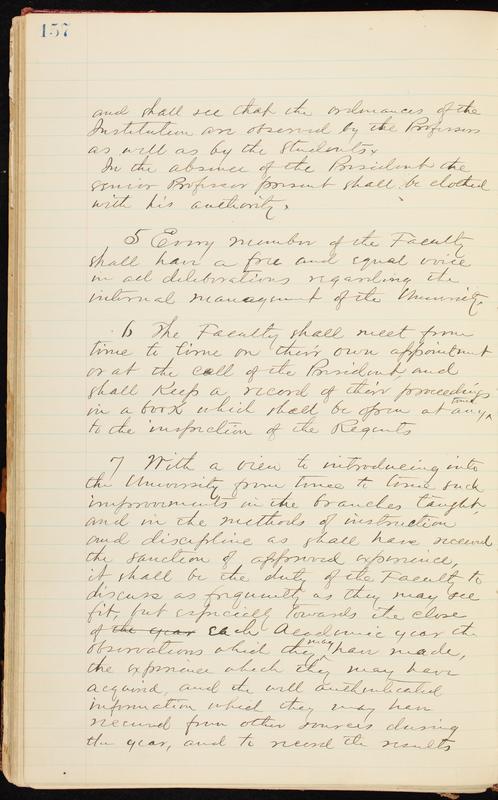 157
and shall see that the ordinances of the
Institution are observed by the Professors
as well as by the Students.
In the absence of the President the
senior Professor present shall be clothed
with his authority.
5 Every member of the Faculty
shall have a free and equal voice
in all deliberations regarding the
internal management of the University.
6 The Faculty shall meet from
time to time on their own appointment
or at the call of the President, and
shall Keep a record of their proceedings
in a book which shall be open at any time
to the inspection of the Regents
7 With a view to introducing into
the University from time to time such
improvements in the branches taught
and in the methods of instruction
and discipline as shall have received
the sanction of approved experience,
it shall be the duty of the Faculty to
discuss as frequently as they may see
fit, but especially towards the close
of the year each Academic year the
observations which they may have made,
the experience which they may have
acquired, and the well authenticated
information which they may have
received from other sources during
the year, and to record the results